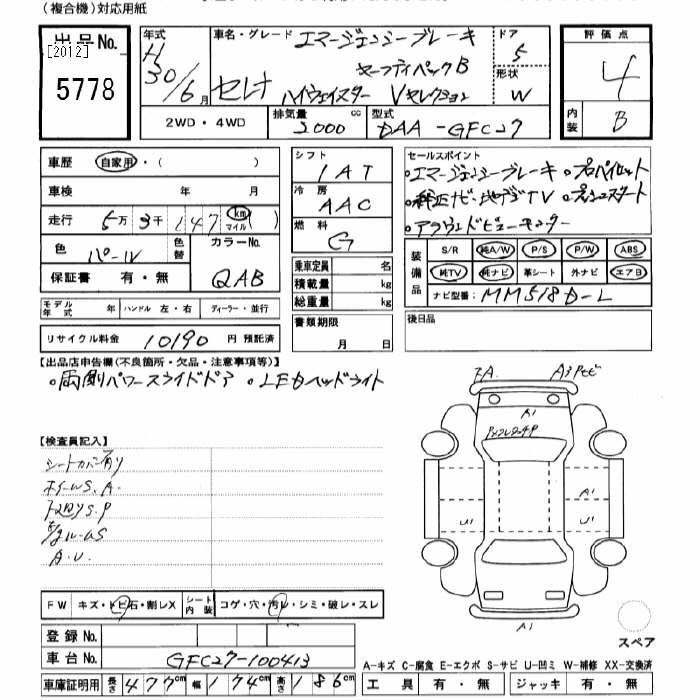 (複合機)対応用紙
出品No. [2012] 5778
年式 H30/6月
車名・グレード エマージェンシーブレーキ
セーフティパックB
セレナ ハイウェイスター Vセレクション
ドア 5
形状 W
評価点 4
内装 B
2WD・4WD
排気量 2000 cc
型式 DAA-GFC27
車歴 自家用・( )
車検 年 月
走行 5万3千147 km マイル )
色 パール 色替 カラーNo. QAB
保証書 有・無
シフト IAT
冷房 AAC
燃料 G
乗車定員 名
積載量 kg
総重量 kg
書類期限 月 日
セールスポイント
・エマージェンシーブレーキ ・プロパイロット
・純正ナビ・地デジTV ・プッシュスタート
・アラウンドビューモニター
装備品 S/R 純A/W P/S P/W ABS
純TV 純ナビ 革シート 外ナビ エアB
ナビ型番: MM518D-L
後日品
モデル年式 年 ハンドル 左・右 ディーラー・並行
リサイクル料金 10190 円 預託済
【出品店申告欄(不良箇所・欠品・注意事項等)】
・両側パワースライドドア ・LEDヘッドライト
【検査員記入】
シートカバー有り
ホイールS.A.
下廻りS.P
A.U.
FW キズ・トビ石・割レX シート内装 コゲ・穴・汚レ・シミ・破レ・スレ
登録No.
車台No. GFC27-100413
車庫証明用 長さ 477cm 幅 174cm 高さ 186cm
A1
A1
U1
U1
A1
A1
スペア
A-キズ C-腐食 E-エクボ S-サビ U-凹ミ W-補修 XX-交換済
工具 有・無 ジャッキ 有・無